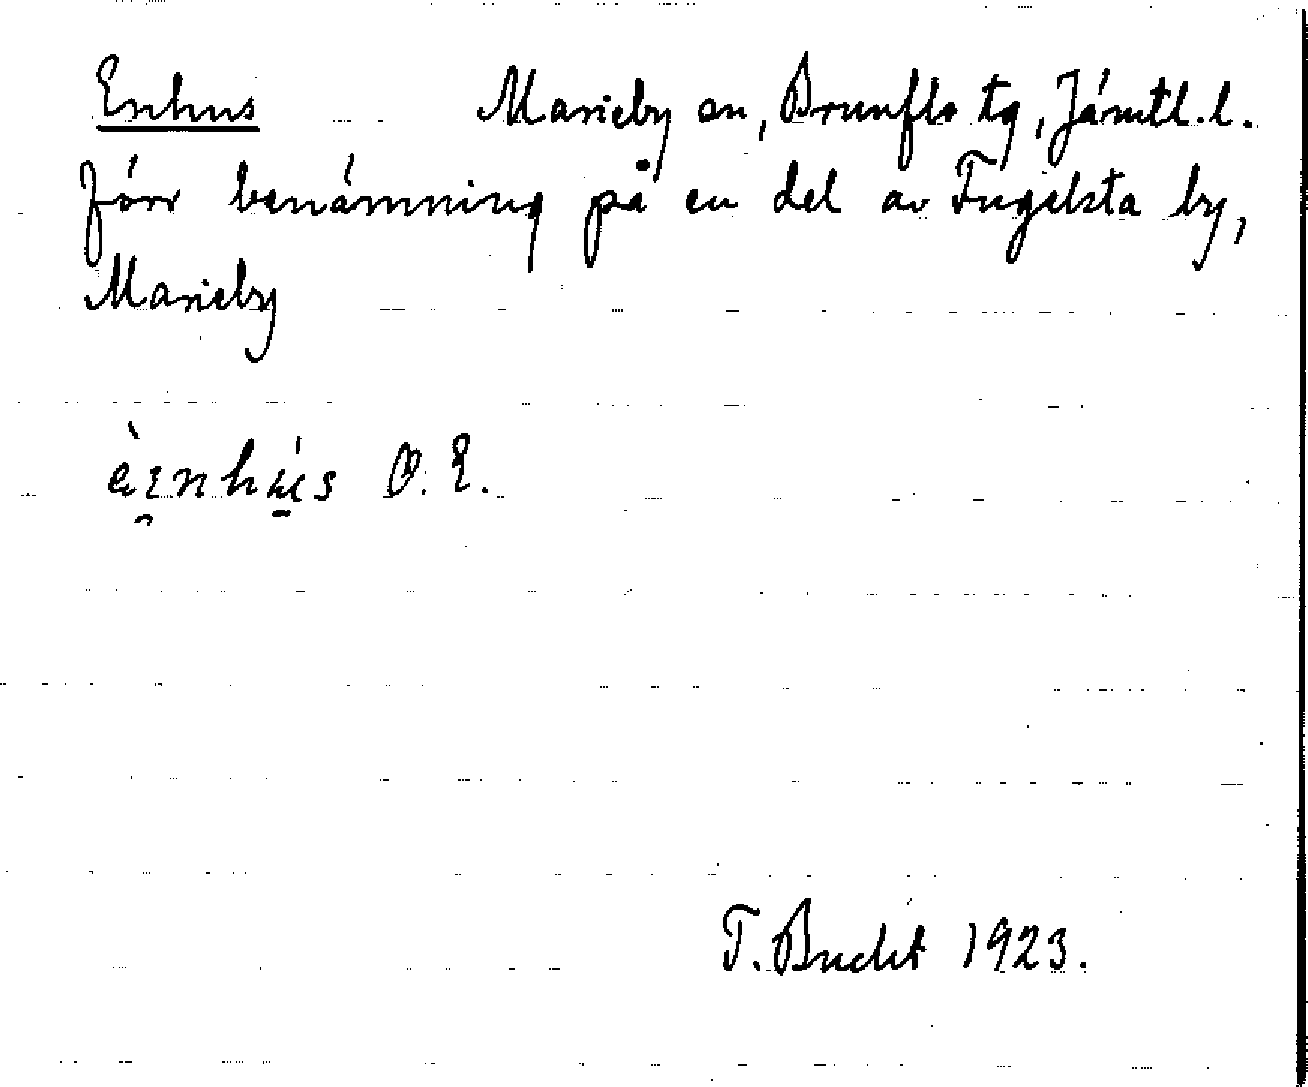 Enhus Marieby sn, Brunflo tg, Jämtl.l.
förr benämning på en del av Fugelsta by,
Marieby
èi̯nhús O. E.
T. Bucht 1923.